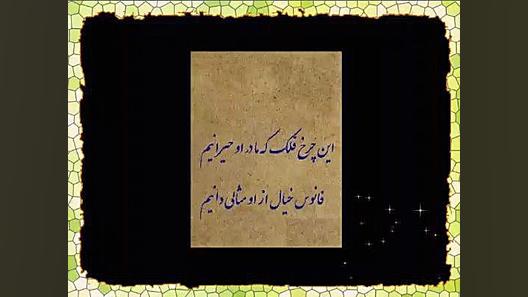 این چرخ فلک که ما در او حیرانیم
فانوس خیال از او مثالی دانیم